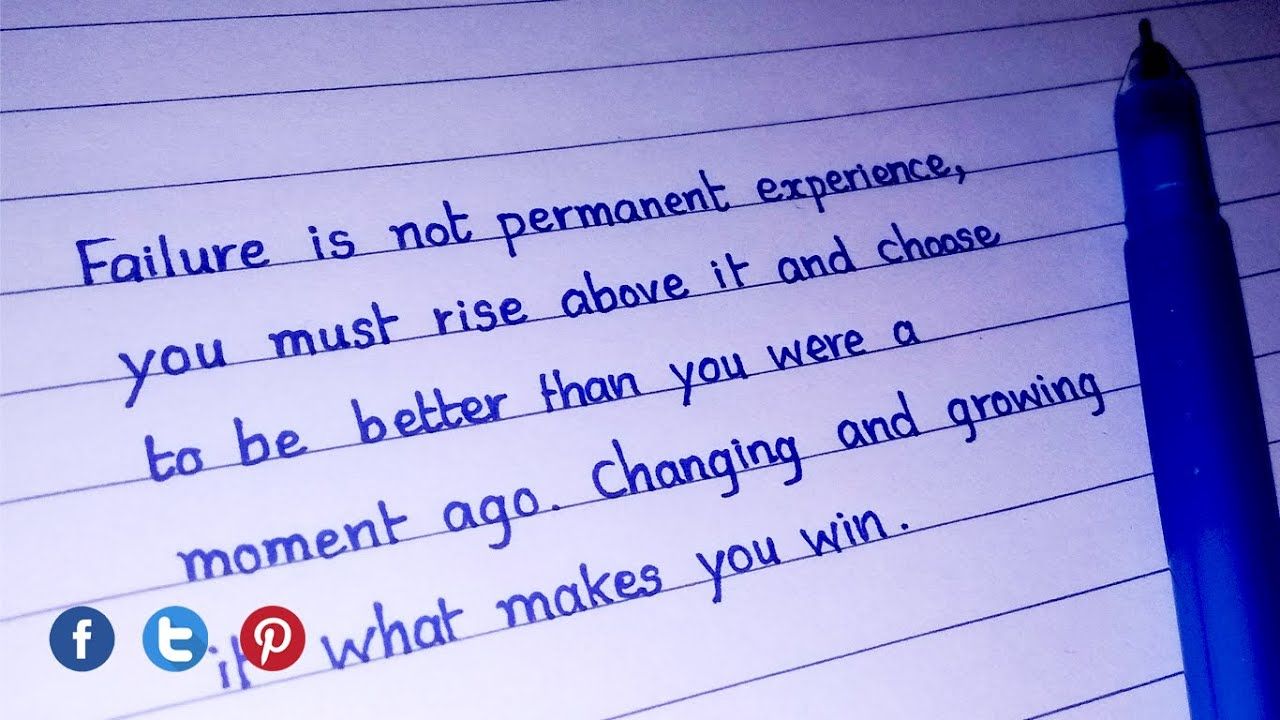 Failure is not permanent experience,
you must rise above it and choose
to be better than you were a
moment ago. Changing and growing
it what makes you win.